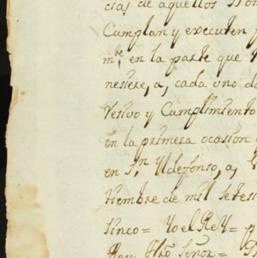 cias de aquellos
Cumplan y executen
mte, en la parte que
nesiere, a, cada uno de
tesivo y Cumplimiento
en la primera ocasion
en Sn Yldefonso, a,
tiembre de mil setes
sinco= Yo el Rey= p
Rey Nro Señor=